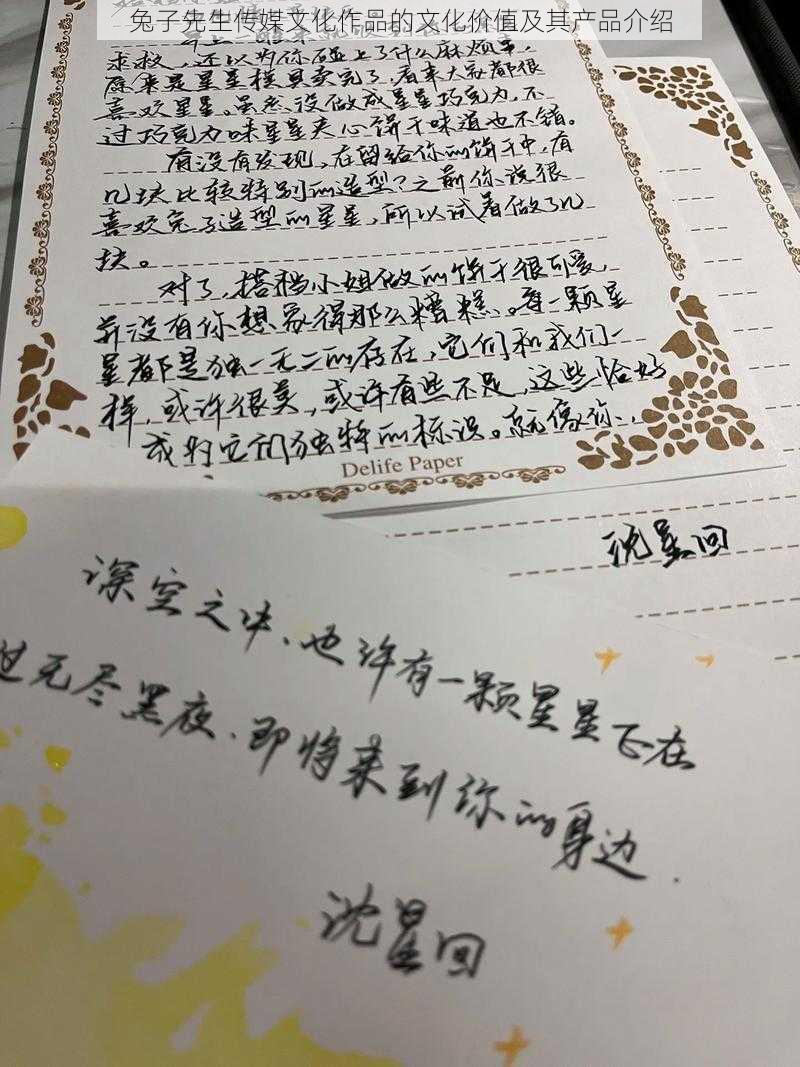 兔子先生传媒文化作品的文化价值及其产品介绍
求救，还以为你碰上了什么麻烦事，
原来是星星模具卖完了，看来大家都很
喜欢星星。虽然没做成星星巧克力，不
过巧克力味星星夹心饼干味道也不错。
有没有发现，在留给你的饼干中，有
几块比较特别的造型？之前你说很
喜欢兔子造型的星星，所以试着做了几
块。
对了，搭档小姐做的饼干很可爱，
并没有你想象得那么糟糕。每一颗星
星都是独一无二的存在，它们和我们一
样，或许很美，或许有些不足，这些恰好
成为它们独特的标识。就像你，
Delife Paper
沈星回
深空之中，也许有一颗星星正在
过无尽黑夜，即将来到你的身边.
沈星回